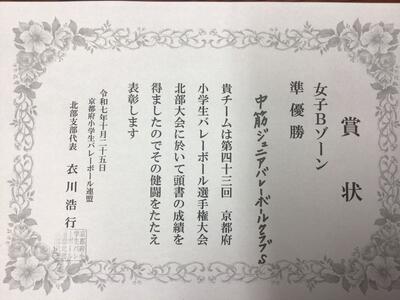 賞状
女子Bゾーン
準優勝
中筋ジュニアバレーボールクラブS
貴チームは第四十三回 京都府
小学生バレーボール選手権大会
北部大会に於いて頭書の成績を
得ましたのでその健闘をたたえ
表彰します
令和七年十月二十五日
京都府小学生バレーボール連盟
北部支部代表 衣川浩行